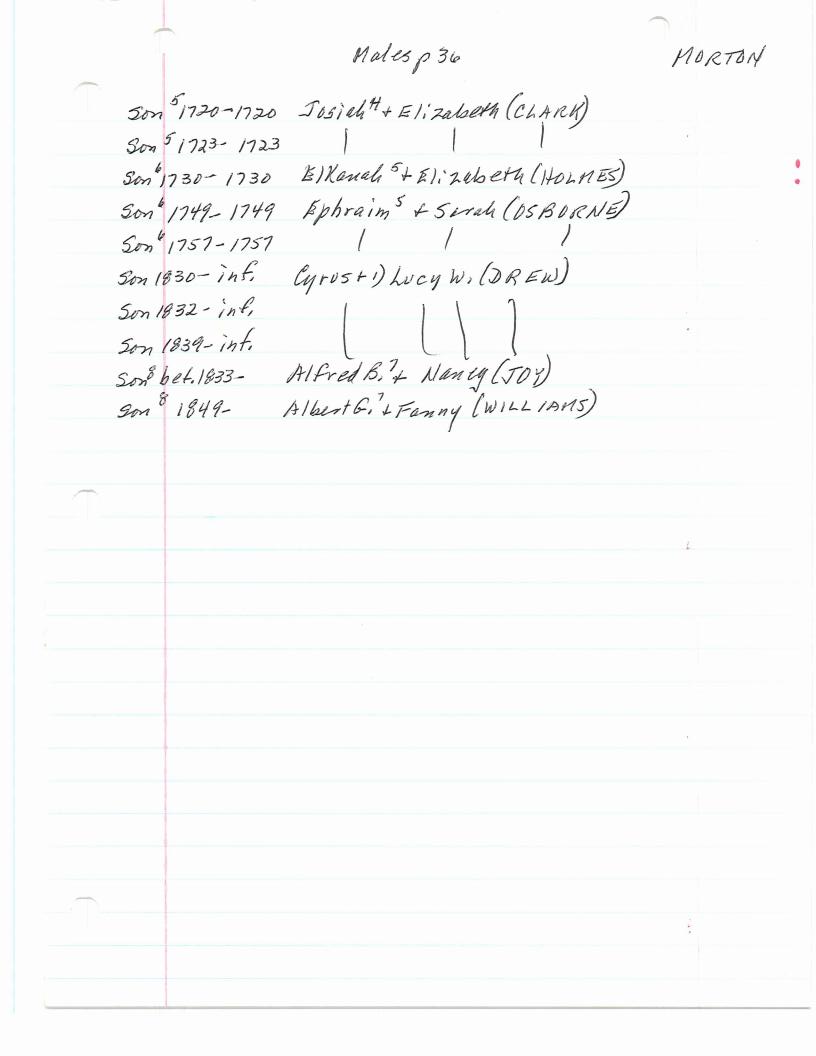 Males p 36 MORTON
Son⁵ 1720-1720 Josiah⁴ + Elizabeth (CLARK)
Son⁵ 1723- 1723 | | |
Son⁶ 1730- 1730 Elkanah⁵ + Elizabeth (HOLMES)
Son⁶ 1749- 1749 Ephraim⁵ + Sarah (OSBORNE)
Son⁶ 1757-1757 | | |
Son 1830- inf. Cyrus + 1) Lucy W. (DREW)
Son 1832 - inf.
Son 1839- inf.
Son⁸ bet. 1833- Alfred B.⁷ + Nancy (JOY)
Son⁸ 1849- Albert G.⁷ + Fanny (WILLIAMS)